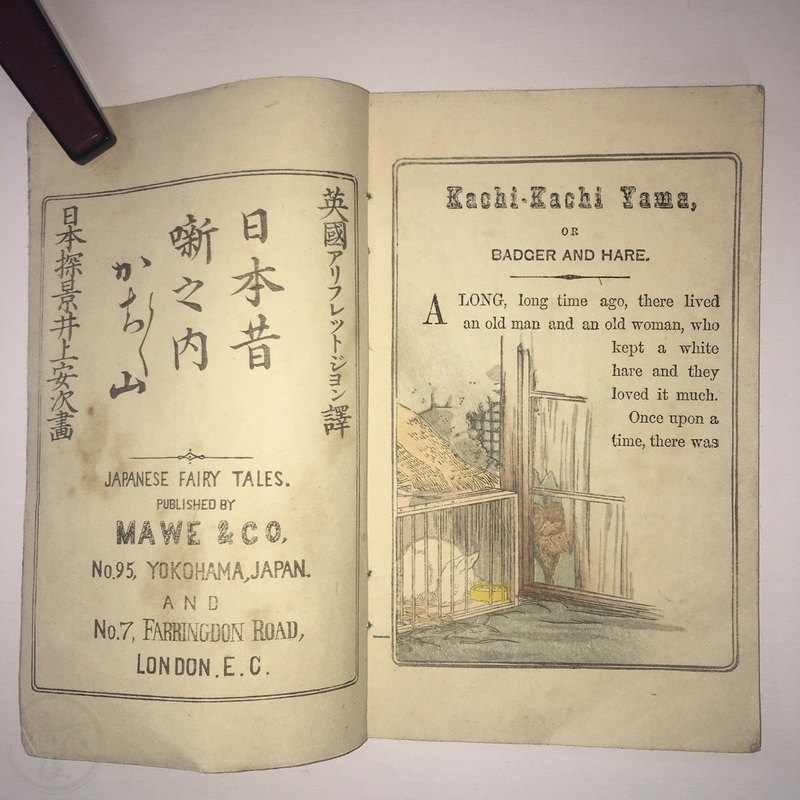 英國アリフレットジヨン譯
日本昔
噺之内
かち〱山
日本探景井上安次畵
JAPANESE FAIRY TALES.
PUBLISHED BY
MAWE & CO.
No.95, YOKOHAMA, JAPAN.
AND
No.7, FARRINGDON ROAD,
LONDON. E. C.
Kachi-Kachi Yama,
OR
BADGER AND HARE.
A LONG, long time ago, there lived
an old man and an old woman, who
kept a white
hare and they
loved it much.
Once upon a
time, there was